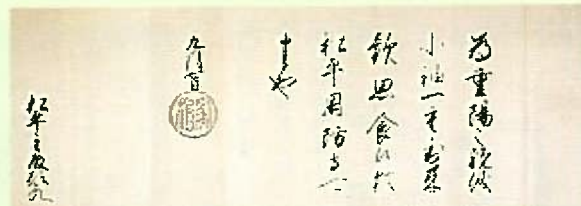 為重陽之祝儀
小袖一重到来
歓思食候猶
松平周防守可
申也
九月日
松平主殿頭